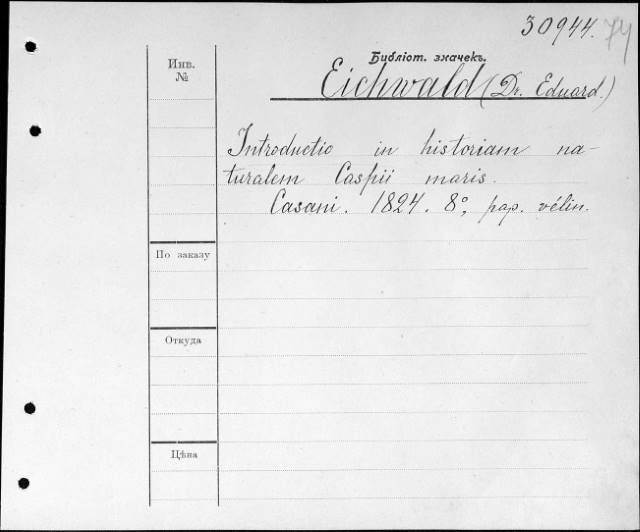 30944. 74
Инв.
№
Библіот. значекъ.
Eichwald (Dr. Eduard.)
Introductio in historiam na-
turalem Caspii maris.
Casani. 1824. 8°, pap. vélin.
По заказу
Откуда
Цѣна